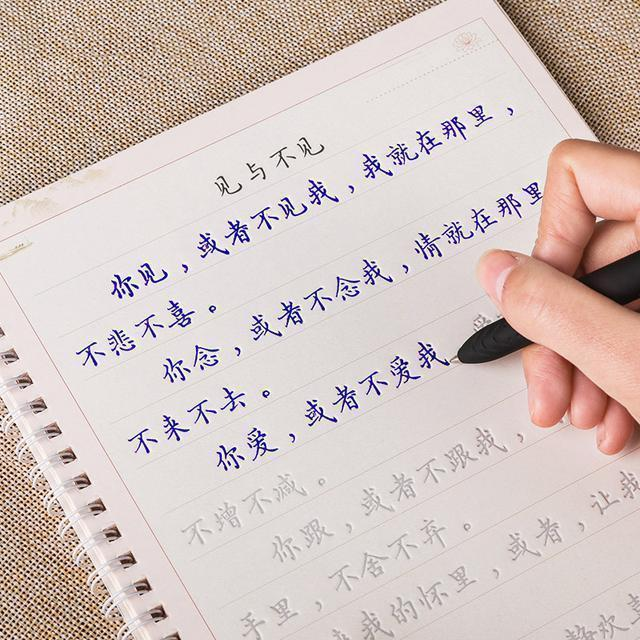 见与不见
你见，或者不见我，我就在那里，
不悲不喜。
你念，或者不念我，情就在那里
不来不去。
你爱，或者不爱我
不增不减。
你跟，或者不跟我，
手里，不舍不弃。
来我的怀里，或者，让我